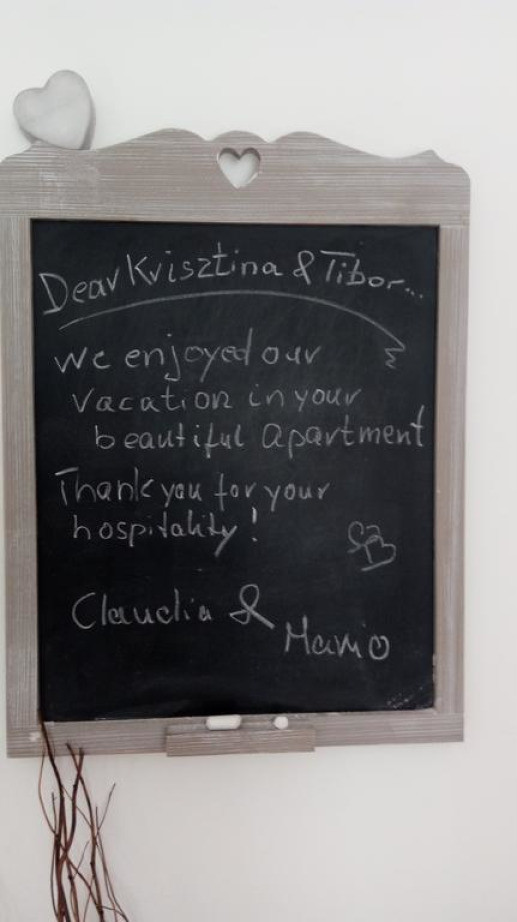 Dear Krisztina & Tibor...
We enjoyed our
vacation in your
beautiful apartment
Thank you for your
hospitality!
Claudia &
Mario